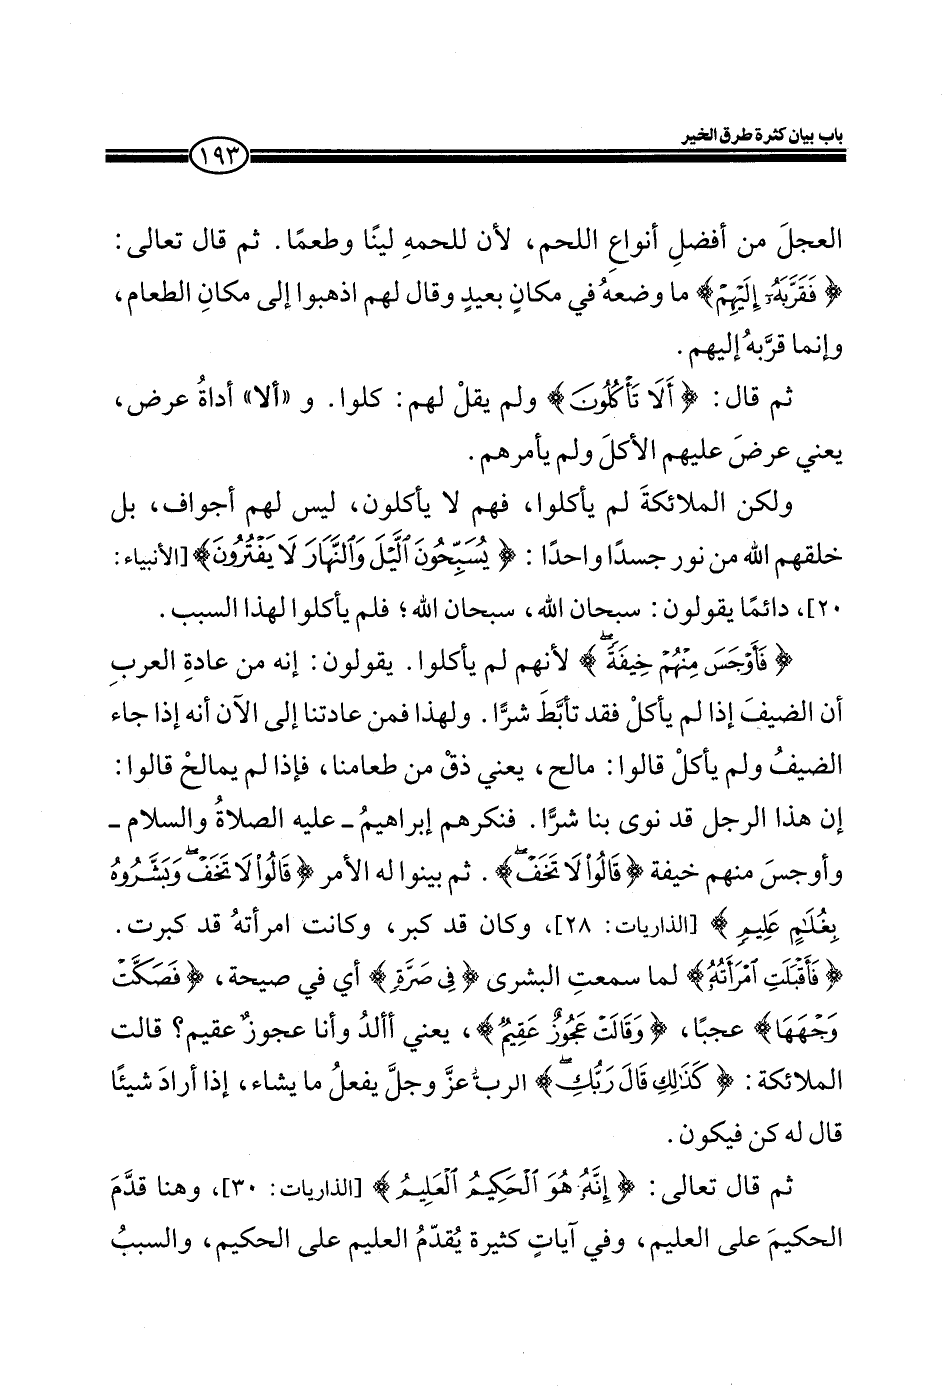 باب بيان كثرة طرق الخير
١٩٣
العجلَ من أفضلِ أنواعِ اللحم، لأن للحمهِ لينًا وطعمًا. ثم قال تعالى:
﴿ فَقَرَّبَهُۥٓ إِلَيۡهِمۡ ﴾ ما وضعهُ في مكانٍ بعيدٍ وقال لهم اذهبوا إلى مكانِ الطعام،
وإنما قرَّبهُ إليهم.
ثم قال: ﴿ أَلَا تَأۡكُلُونَ ﴾ ولم يقلْ لهم: كلوا. و «ألا» أداةُ عرض،
يعني عرضَ عليهم الأكلَ ولم يأمرهم.
ولكن الملائكةَ لم يأكلوا، فهم لا يأكلون، ليس لهم أجواف، بل
خلقهم الله من نور جسدًا واحدًا: ﴿ يُسَبِّحُونَ ٱلَّيۡلَ وَٱلنَّهَارَ لَا يَفۡتُرُونَ ﴾ [الأنبياء:
٢٠]، دائمًا يقولون: سبحان الله، سبحان الله؛ فلم يأكلوا لهذا السبب.
﴿ فَأَوۡجَسَ مِنۡهُمۡ خِيفَةٗۖ ﴾ لأنهم لم يأكلوا. يقولون: إنه من عادةِ العربِ
أن الضيفَ إذا لم يأكلْ فقد تأبَّطَ شرًّا. ولهذا فمن عادتنا إلى الآن أنه إذا جاء
الضيفُ ولم يأكلْ قالوا: مالح، يعني ذقْ من طعامنا، فإذا لم يمالحْ قالوا:
إن هذا الرجل قد نوى بنا شرًّا. فنكرهم إبراهيمُ ـ عليه الصلاةُ والسلام ـ
وأوجسَ منهم خيفة ﴿ قَالُواْ لَا تَخَفۡۖ ﴾. ثم بينوا له الأمر ﴿ قَالُواْ لَا تَخَفۡۖ وَبَشَّرُوهُ
بِغُلَٰمٍ عَلِيمٖ ﴾ [الذاريات: ٢٨]، وكان قد كبر، وكانت امرأتهُ قد كبرت.
﴿ فَأَقۡبَلَتِ ٱمۡرَأَتُهُۥ ﴾ لما سمعتِ البشرى ﴿ فِي صَرَّةٖ ﴾ أي في صيحة، ﴿ فَصَكَّتۡ
وَجۡهَهَا ﴾ عجبًا، ﴿ وَقَالَتۡ عَجُوزٌ عَقِيمٞ ﴾، يعني أألدُ وأنا عجوزٌ عقيم؟ قالت
الملائكة: ﴿ كَذَٰلِكِ قَالَ رَبُّكِۖ ﴾ الربُ عزَّ وجلَّ يفعلُ ما يشاء، إذا أرادَ شيئًا
قال له كن فيكون.
ثم قال تعالى: ﴿ إِنَّهُۥ هُوَ ٱلۡحَكِيمُ ٱلۡعَلِيمُ ﴾ [الذاريات: ٣٠]، وهنا قدَّمَ
الحكيمَ على العليم، وفي آياتٍ كثيرة يُقدّمُ العليم على الحكيم، والسببُ